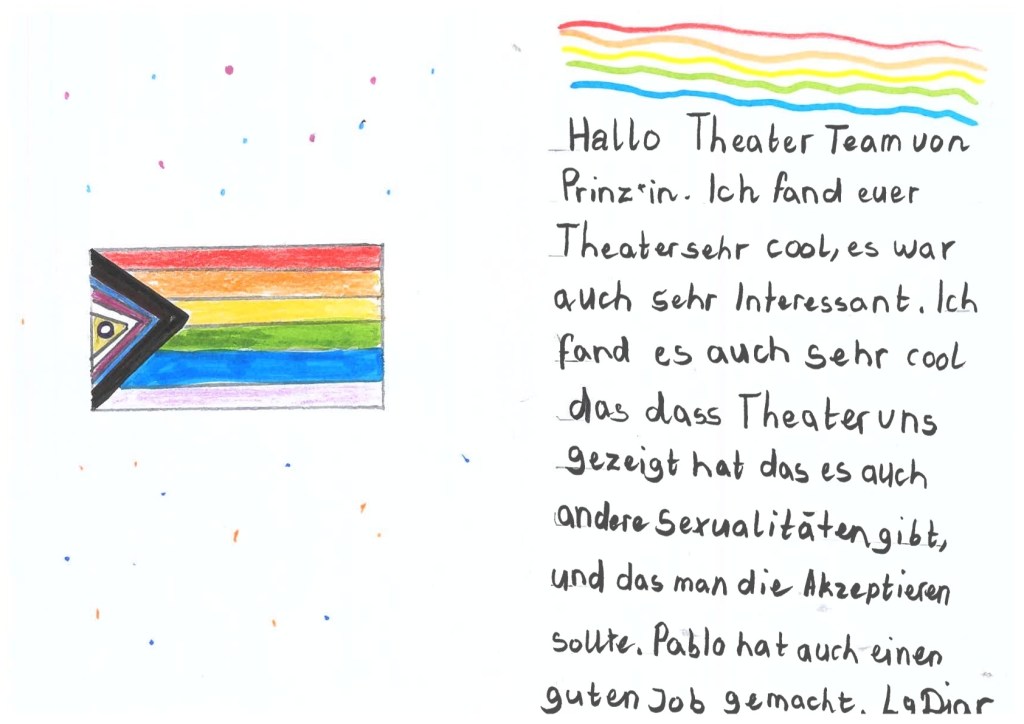 Hallo Theater Team von
Prinz*in. Ich fand euer
Theater sehr cool, es war
auch sehr Interessant. Ich
fand es auch sehr cool
das dass Theater uns
gezeigt hat das es auch
andere Sexualitäten gibt,
und das man die Akzeptieren
sollte. Pablo hat auch einen
guten Job gemacht. Lg